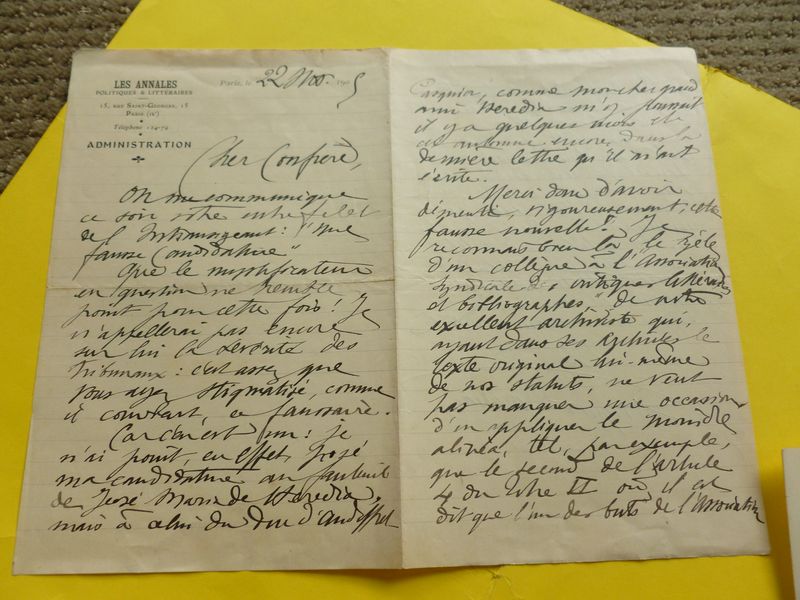 LES ANNALES
POLITIQUES & LITTÉRAIRES
15, RUE SAINT-GEORGES, 15
PARIS (IXe)
Téléphone 124-72
ADMINISTRATION
Paris, le 22 Nov. 1905
Cher Confrère,
On me communique
ce soir votre entrefilet
de l'Intransigeant : "Une
fausse candidature"
Que le mystificateur
en question ne tremble
point pour cette fois ! Je
n'appellerai pas encore
sur lui la sévérité des
tribunaux : c'est assez que
vous ayez stigmatisé, comme
il convient, ce faussaire.
Car c'en est un : je
n'ai point, en effet, posé
ma candidature au fauteuil
de José Maria de Heredia,
mais à celui du Duc d'Audiffret
Pasquier, comme mon cher grand
ami Heredia m'y
il y a quelques mois et
encore dans la
dernière lettre qu'il m'ait
écrite.
Merci donc d'avoir
démenti, vigoureusement, cette
fausse nouvelle ! Je
reconnais bien là le zèle
d'un collègue à l'Association
syndicale des "critiques littéraires
et bibliographes", de notre
excellent archiviste qui,
ayant dans ses archives le
texte original lui-même
de nos statuts, ne veut
pas manquer une occasion
d'en appliquer le moindre
alinéa, tel, par exemple,
que le second de l'article
4 du titre II où il est
dit que l'un des buts de l'Association